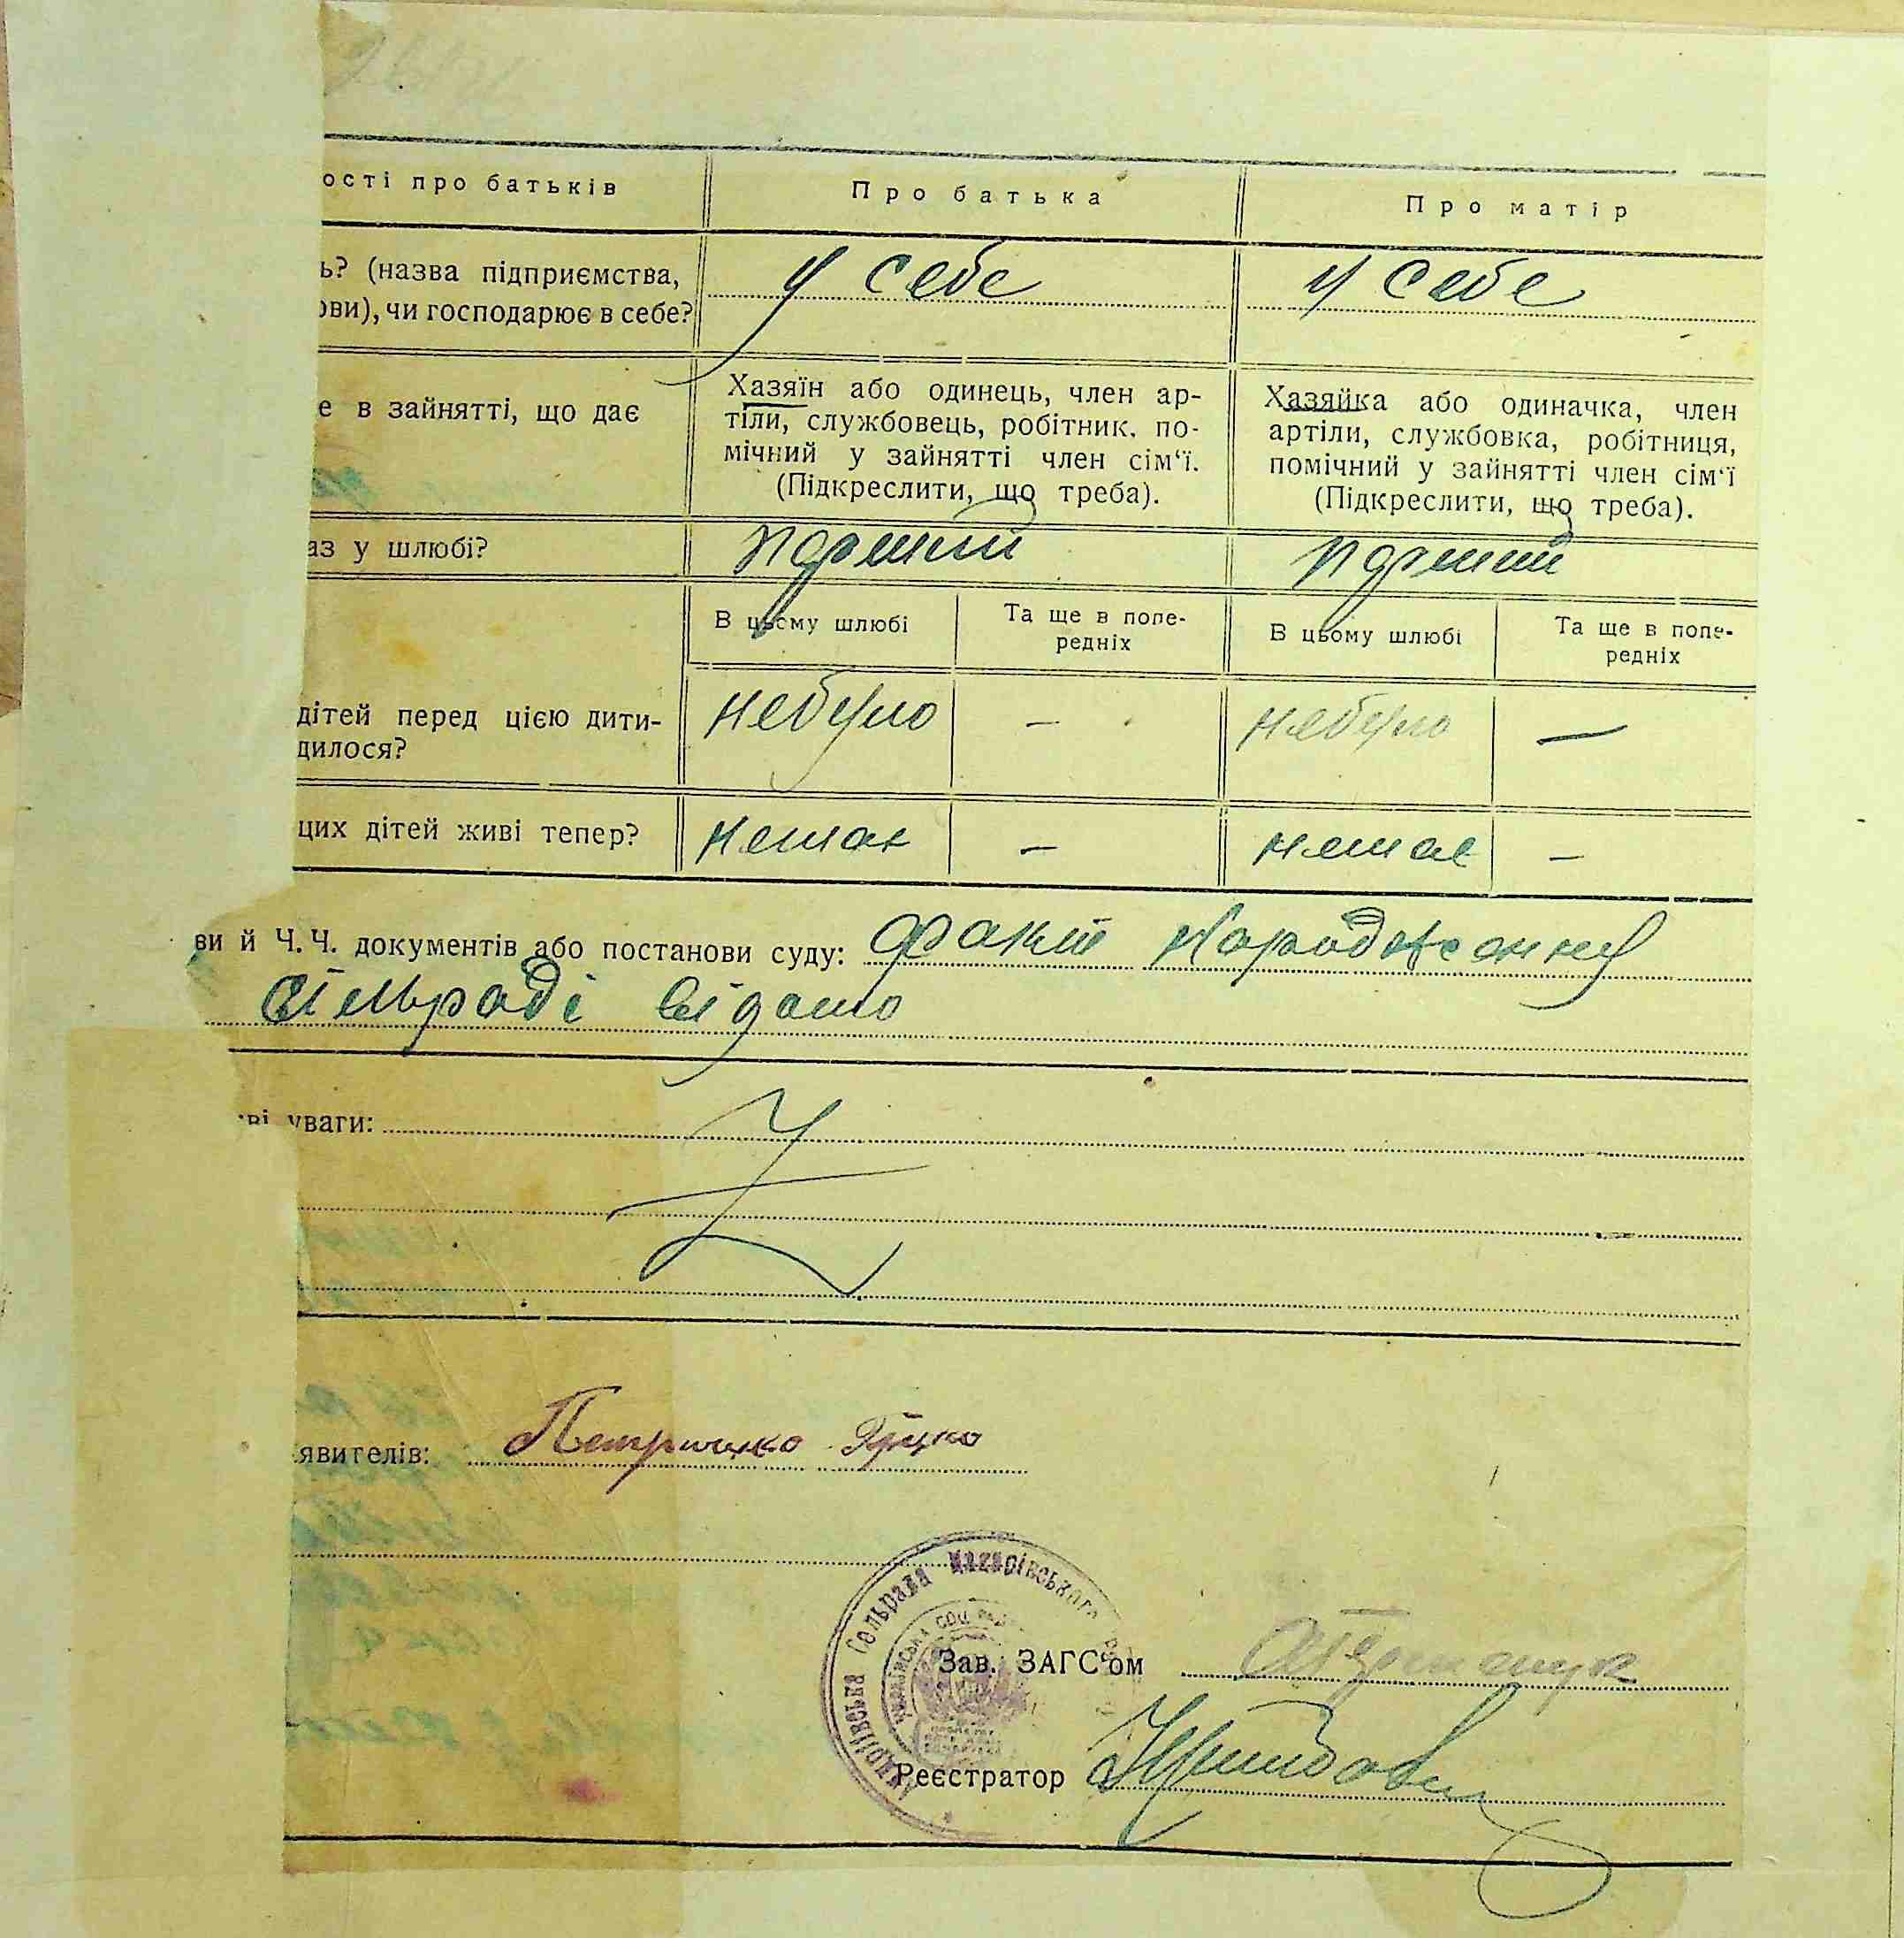 ості про батьків
Про батька
Про матір
ь? (назва підприємства,
ови), чи господарює в себе?
у себе
у себе
е в зайнятті, що дає
Хазяїн або одинець, член ар-
тіли, службовець, робітник, по-
мічний у зайнятті член сім‘ї.
(Підкреслити, що треба).
Хазяйка або одиначка, член
артіли, службовка, робітниця,
помічний у зайнятті член сім‘ї
(Підкреслити, що треба).
аз у шлюбі?
перший
перший
В цьому шлюбі
Та ще в попе-
редніх
В цьому шлюбі
Та ще в попе-
редніх
дітей перед цією дити-
дилося?
небуло
–
небуло
–
цих дітей живі тепер?
немає
–
немає
–
ви й Ч.Ч. документів або постанови суду: факт народження
сільраді відомо
ві уваги:
явителів: Петриченко
Сольрада Макарівського
Зав. ЗАГС‘ом
Реєстратор